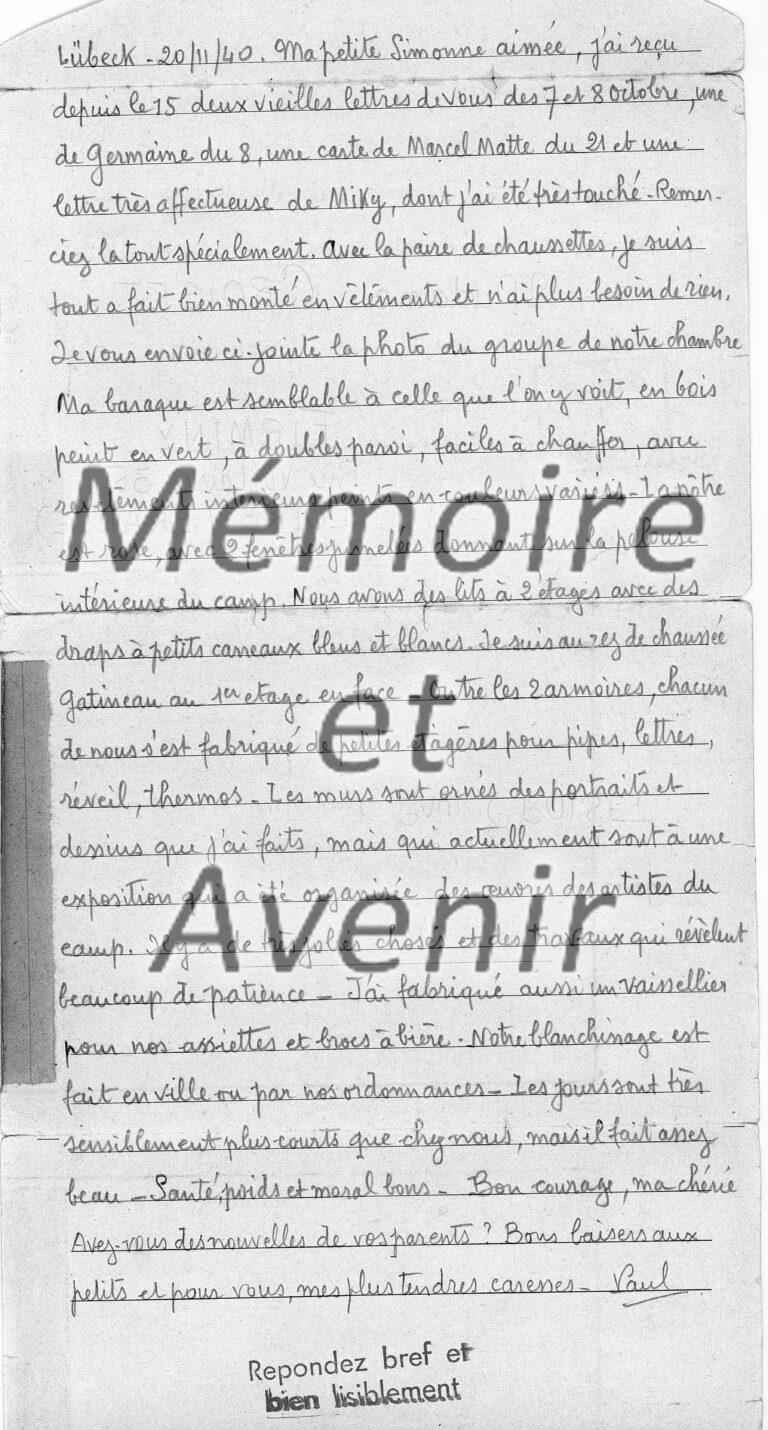 Lübeck - 20/11/40. Ma petite Simonne aimée, j'ai reçu
depuis le 15 deux vieilles lettres de vous des 7 et 8 Octobre, une
de Germaine du 8, une carte de Marcel Matte du 21 et une
lettre très affectueuse de Miky, dont j'ai été très touché - Remer-
ciez la tout spécialement. Avec la paire de chaussettes, je suis
tout a fait bien monté en vêtements et n'ai plus besoin de rien.
Je vous envoie ci-jointe la photo du groupe de notre chambre
Ma baraque est semblable à celle que l'on y voit, en bois
peint en vert, à doubles paroi, faciles à chauffer, avec
ses éléments interieurs peints en couleurs variées - La nôtre
est rose, avec 2 fenêtres jumelées donnant sur la pelouse
intérieure du camp. Nous avons des lits à 2 étages avec des
draps à petits carreaux bleus et blancs. Je suis au rez de chaussée
Gatineau au 1er etage en face - Outre les 2 armoires, chacun
de nous s'est fabriqué de petites étagères pour pipes, lettres,
réveil, thermos - Les murs sont ornés des portraits et
dessins que j'ai faits, mais qui actuellement sont à une
exposition qui a été organisée des œuvres des artistes du
camp. Il y a de très jolies choses et des travaux qui révèlent
beaucoup de patience - J'ai fabriqué aussi un vaissellier
pour nos assiettes et brocs à bière. Notre blanchissage est
fait en ville ou par nos ordonnances - Les jours sont très
sensiblement plus courts que chez nous, mais il fait assez
beau - Santé, poids et moral bons - Bon courage, ma chérie
Avez-vous des nouvelles de vos parents ? Bons baisers aux
petits et pour vous, mes plus tendres caresses - Paul
Repondez bref et
bien lisiblement
Mémoire
et
Avenir